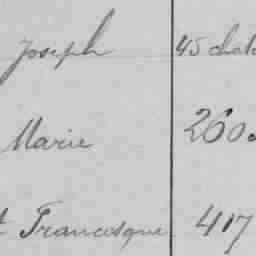 Joseph 45
Marie 260
Francesque 417